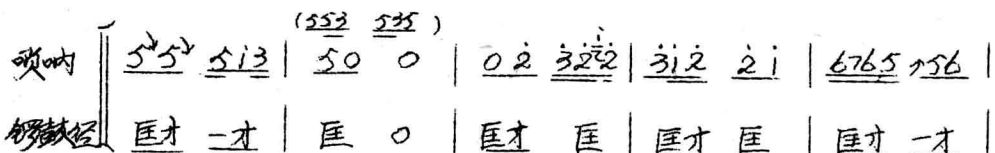 (553 535)
唢呐 5 5 5i3 | 50 0 | 0 2̇ 3̇2̇i̇2̇ | 3̇i̇2̇ 2̇ i̇ | 6765 56 |
锣鼓经 匡才 一才 | 匡 0 | 匡才 匡 | 匡才 匡 | 匡才 一才 |